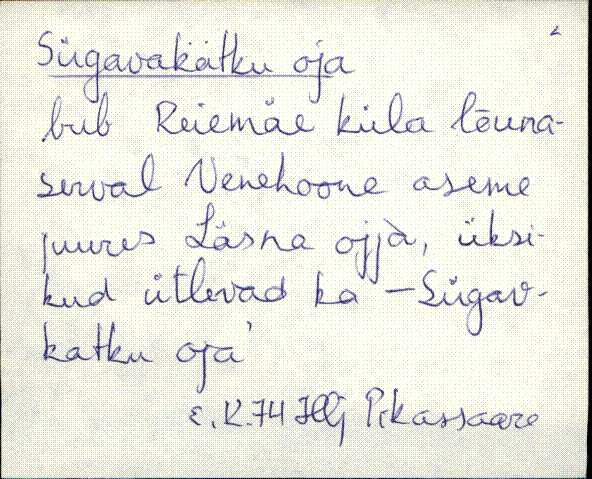 Sügavakätku oja
bub Reiemäe küla lõuna-
serval Venehoone aseme
juures Läsna ojja, üksi-
kud ütlevad ka – Sügav-
katku oja
E. K. 74 Pikassaare